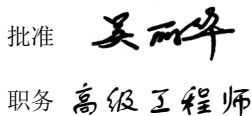 批准 吴丽华
职务 高级工程师